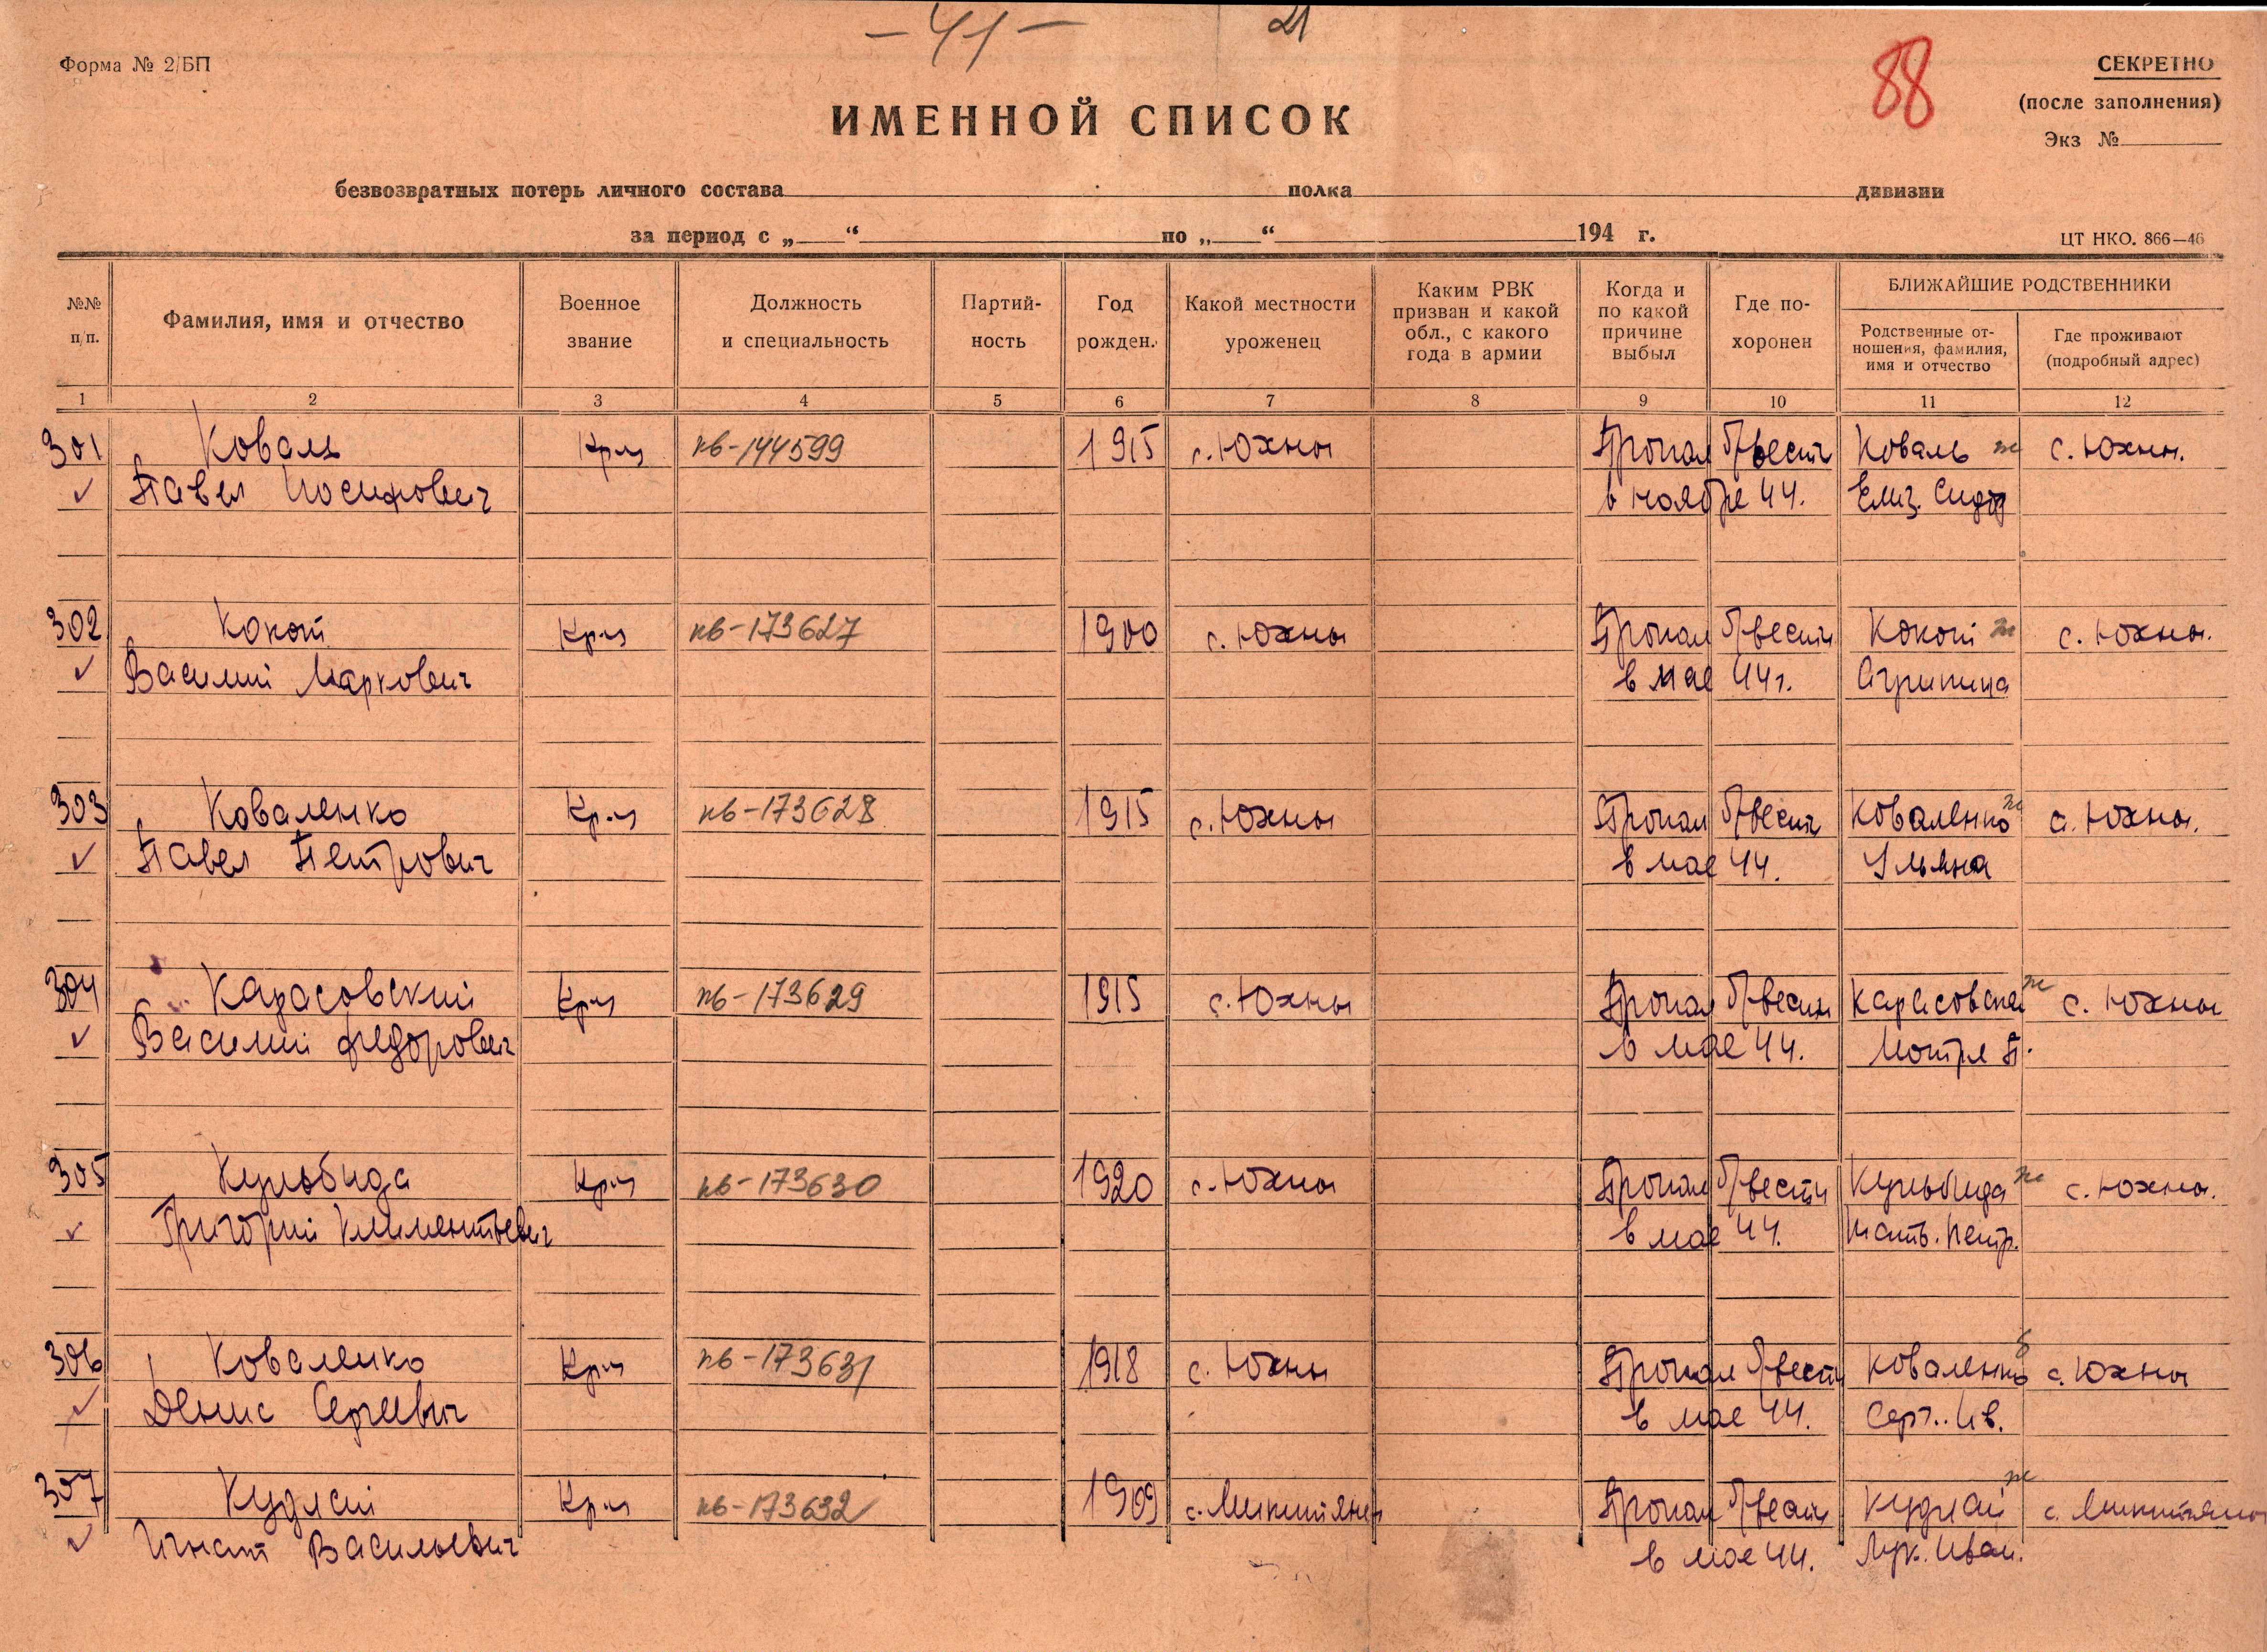 -41- 21
88
Форма № 2/БП
СЕКРЕТНО
(после заполнения)
Экз №
ИМЕННОЙ СПИСОК
безвозвратных потерь личного состава полка дивизии
за период с „ “ по „ “ 194 г.
ЦТ НКО. 866—46
№№ п/п.
Фамилия, имя и отчество
Военное звание
Должность и специальность
Партий-ность
Год рожден.
Какой местности уроженец
Каким РВК призван и какой обл., с какого года в армии
Когда и по какой причине выбыл
Где по-хоронен
БЛИЖАЙШИЕ РОДСТВЕННИКИ
Родственные от-ношения, фамилия, имя и отчество
Где проживают (подробный адрес)
1 2 3 4 5 6 7 8 9 10 11 12
301 Коваль Кр-ц пв-144599 1915 с. Юхны Пропал б/вести Коваль ж с. Юхны.
Павел Иосифович в ноябре 44. Елиз. Сидор
302 Кокот Кр-ц пв-173627 1900 с. Юхны Пропал б/вести Кокот ж с. Юхны.
Василий Маркович в мае 44г. Агрипина
303 Коваленко Кр-ц пв-173628 1915 с. Юхны Пропал б/вести Коваленко ж с. Юхны.
Павел Петрович в мае 44. Ульяна
304 Карасовский Кр-ц пв-173629 1915 с. Юхны Пропал б/вести Карасовская ж с. Юхны
Василий Федорович в мае 44. Мотря П.
305 Кульбида Кр-ц пв-173630 1920 с. Юхны Пропал б/вести Кульбида ж с. Юхны.
Григорий Климентьевич в мае 44. Петр.
306 Коваленко Кр-ц пв-173631 1918 с. Юхны Пропал б/вести Коваленко с. Юхны
Денис Сергеевич в мае 44. Серг. Ив.
307 Кудлай Кр-ц пв-173632 1909 Пропал б/вести Кудлай ж
Игнат Васильевич в мае 44. Иван.